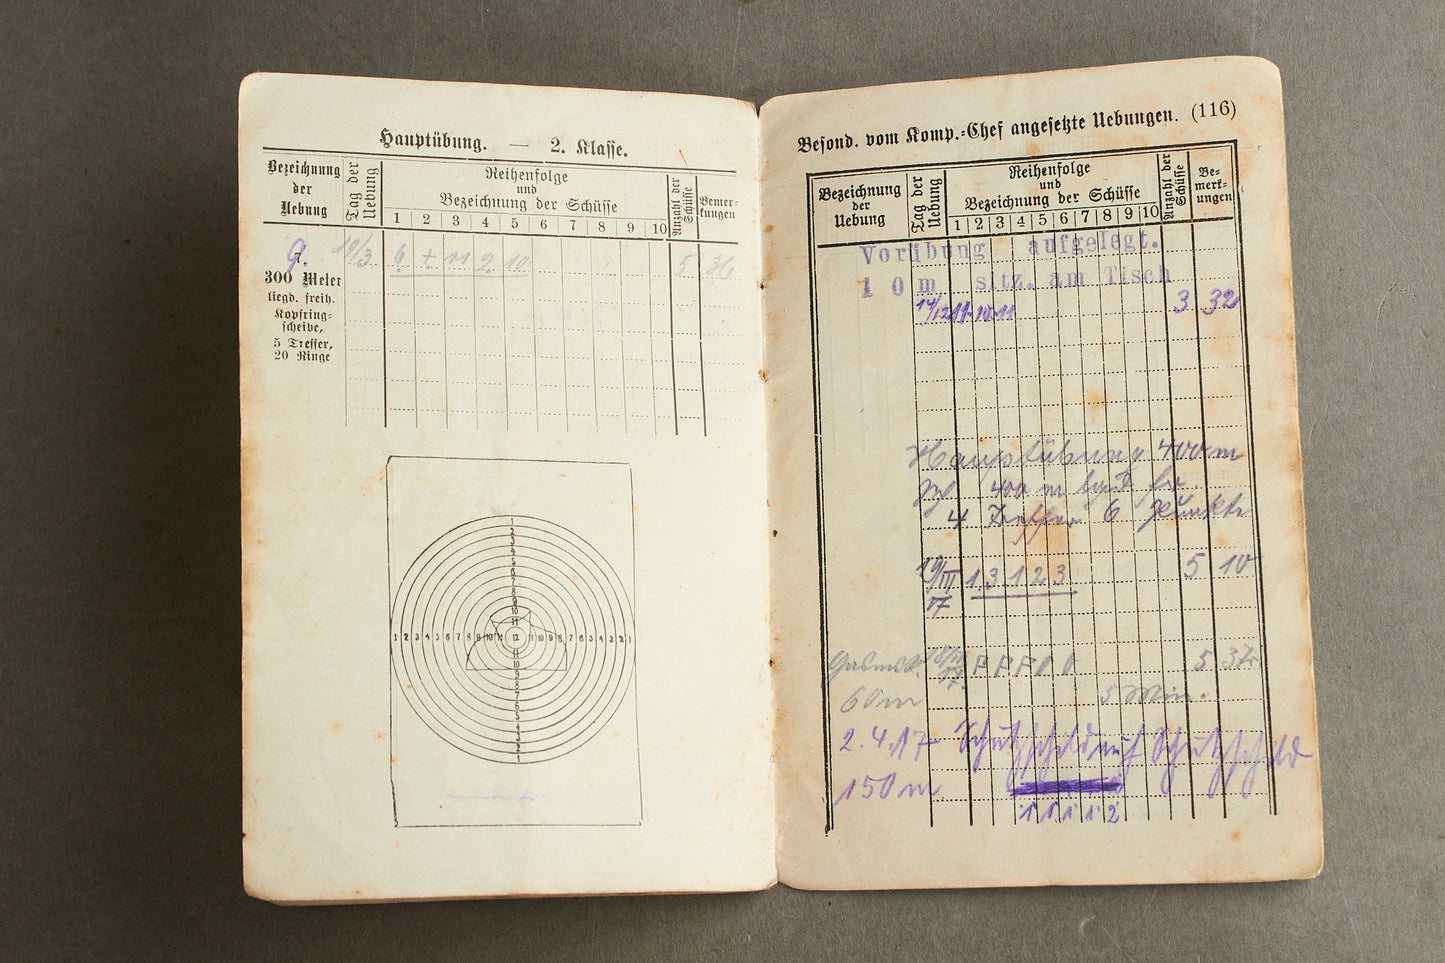 Hauptübung. — 2. Klasse.
Bezeichnung der Uebung
Tag der Uebung
Reihenfolge und Bezeichnung der Schüsse
1 2 3 4 5 6 7 8 9 10
Anzahl der Schüsse
Bemer-kungen
19/3 6 + 11 2 10 5 36
300 Meter
liegd. freih.
Kopfring-
scheibe,
5 Treffer,
20 Ringe
1
2
3
4
5
6
7
8
9
10
11
1 2 3 4 5 6 7 8 9 10 11 12 11 10 9 8 7 6 5 4 3 2 1
11
10
9
8
7
6
5
4
3
2
1
Besond. vom Komp.-Chef angesetzte Uebungen. (116)
Bezeichnung der Uebung
Tag der Uebung
Reihenfolge und Bezeichnung der Schüsse
1 2 3 4 5 6 7 8 9 10
Anzahl der Schüsse
Be-merk-ungen
Vorübung aufgelegt.
10 m sitz. am Tisch
14/12 11 10 11 3 32
Hauptübung 400 m
400 m
4 Treffer 6 Punkte
19/III 17 1 3 1 2 3 5 10
17. F F F 0 0 5
60 m 5 Min.
2.4.17 Schutzschild auf Schutzschild
150 m.
1 1 1 1 2